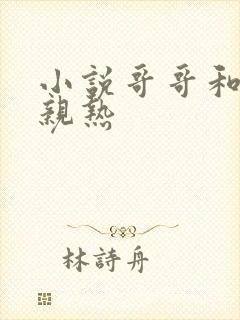 小說哥哥和
親熱
林詩舟